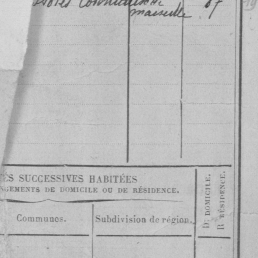 marseille
ES SUCCESSIVES HABITÉES
GEMENTS DE DOMICILE OU DE RÉSIDENCE.
Communes.
Subdivision de région.
D: DOMICILE.
R: RÉSIDENCE.